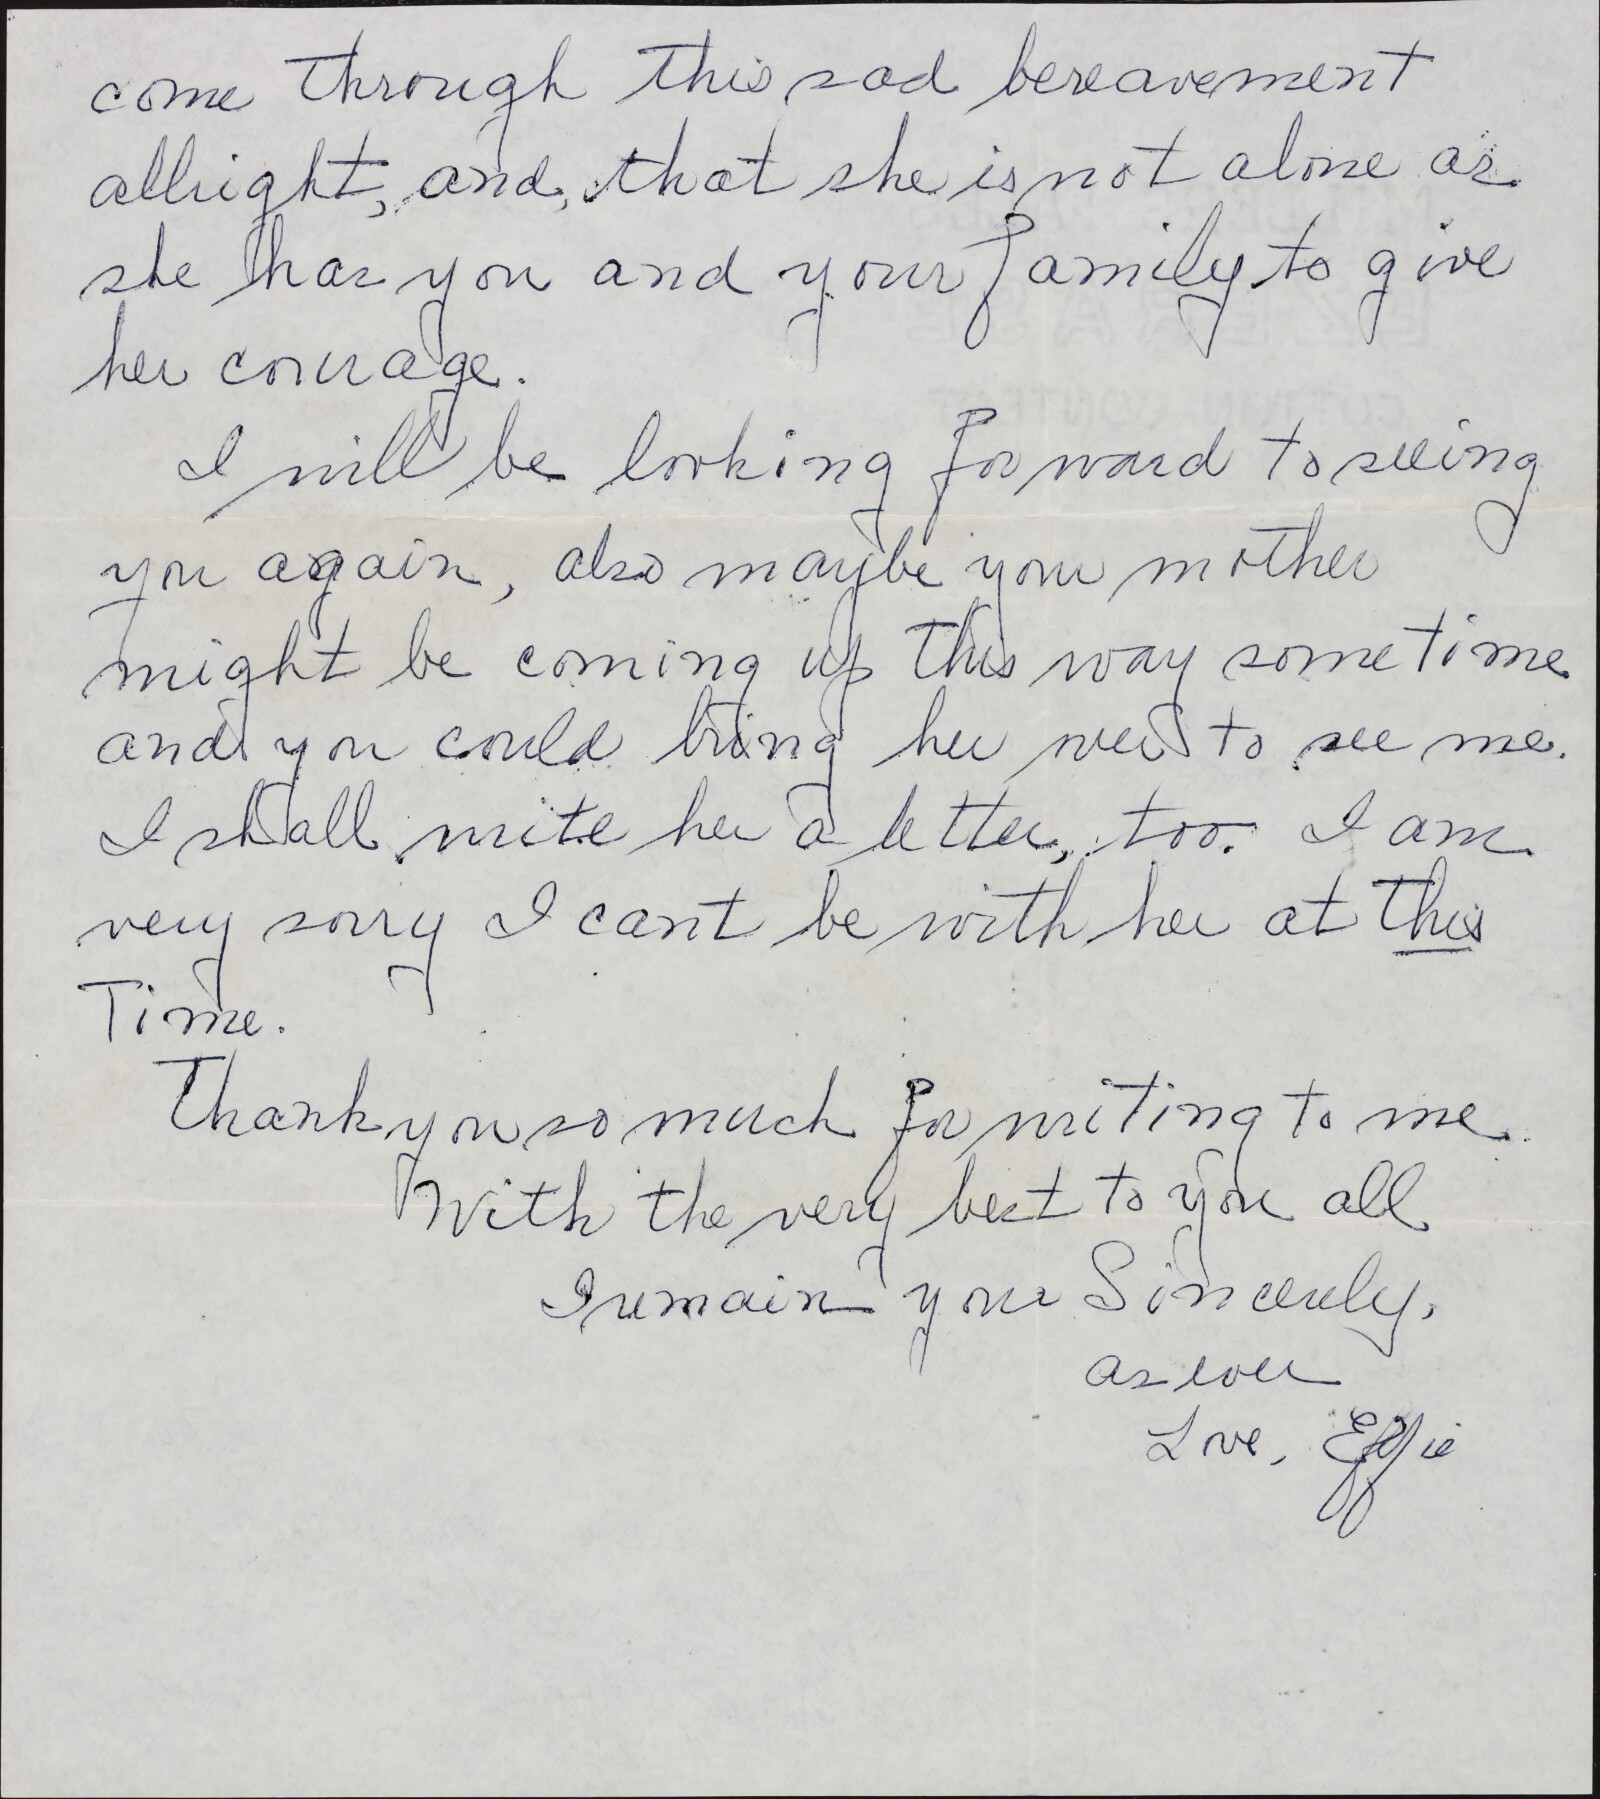 come through this sad bereavement
allright, and, that she is not alone as
she has you and your family to give
her courage.
I will be looking forward to seeing
you again, also maybe your mother
might be coming up this way sometime
and you could bring her over to see me.
I shall write her a letter, too. I am
very sorry I cant be with her at this
Time.
Thank you so much for writing to me.
With the very best to you all
I remain your Sincerely,
as ever
Love, Effie